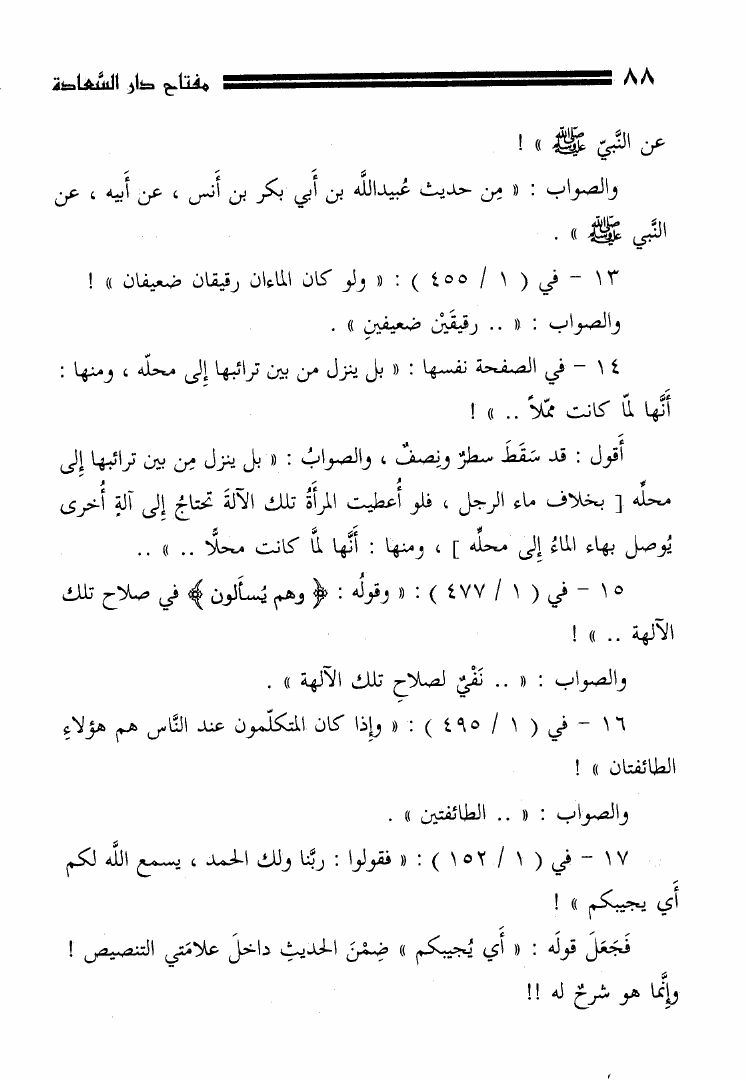 ٨٨ مفتاح دار السَّعادة
عن النَّبيّ ﷺ » !
والصواب : « مِن حديث عُبيدالله بن أَبي بكر بن أَنس ، عن أَبيه ، عن
النَّبي ﷺ » .
١٣ – في ( ١ / ٤٥٥ ) : « ولو كان الماءان رقيقان ضعيفان » !
والصواب : « .. رقيقَيْن ضعيفينِ » .
١٤ – في الصفحة نفسها : « بل ينزل من بين ترائبها إِلى محلّه ، ومنها :
أَنَّها لمّا كانت ممّلاً .. » !
أَقول : قد سَقَطَ سطرٌ ونِصفٌ ، والصوابُ : « بل ينزل مِن بين ترائبها إِلى
محلِّه [ بخلاف ماء الرجل ، فلو أُعطيت المرأَةُ تلك الآلةَ تحتاجُ إِلى آلةٍ أُخرى
يُوصل بهاء الماءُ إِلى محلِّه ] ، ومنها : أَنَّها لمَّا كانت محلًّا .. » ..
١٥ – في ( ١ / ٤٧٧ ) : « وقولُه : ﴿ وهم يُسأَلون ﴾ في صلاح تلك
الآلهة .. » !
والصواب : « .. نَفْيٌ لصلاحِ تلك الآلهة » .
١٦ – في ( ١ / ٤٩٥ ) : « وإِذا كان المتكلّمون عند النَّاس هم هؤلاءِ
الطائفتان » !
والصواب : « .. الطائفتين » .
١٧ – في ( ١ / ١٥٢ ) : « فقولوا : ربَّنا ولك الحمد ، يسمع اللَّه لكم
أَي يجيبكم » !
فَجَعَلَ قولَه : « أَي يُجيبكم » ضِمْنَ الحديثِ داخلَ علامَتي التنصيص !
وإِنَّما هو شرحٌ له !!